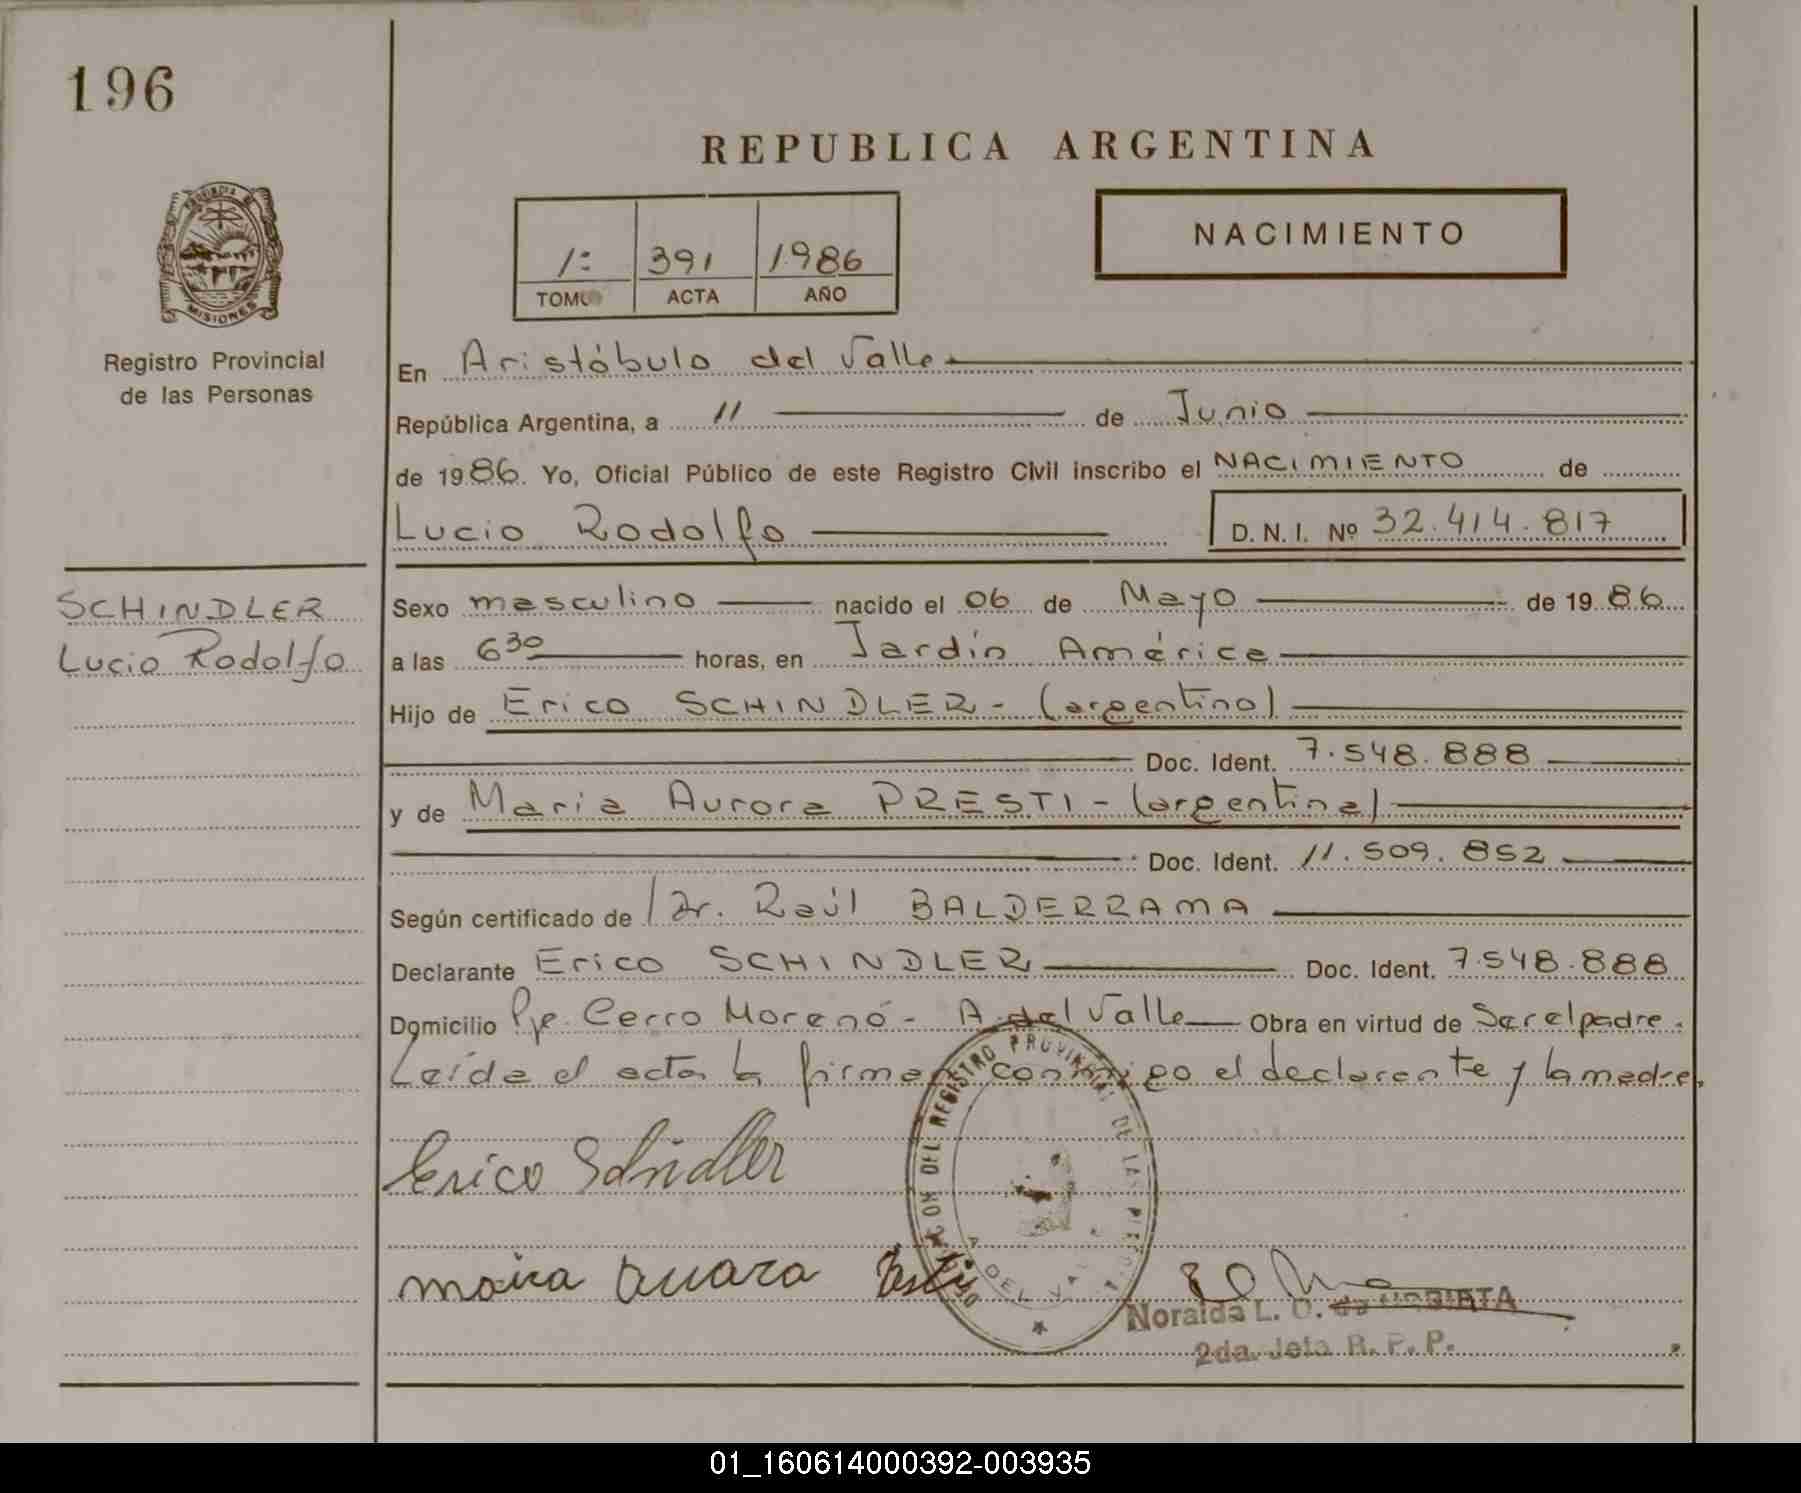 196
REPUBLICA ARGENTINA
NACIMIENTO
1º 391 1986
TOMO ACTA AÑO
PROVINCIA DE
MISIONES
Registro Provincial
de las Personas
En Aristóbulo del Valle
República Argentina, a 11 de Junio
de 1986. Yo, Oficial Público de este Registro Civil inscribo el NACIMIENTO de
Lucio Rodolfo D. N. I. Nº 32.414.817
SCHINDLER
Lucio Rodolfo
Sexo masculino nacido el 06 de Mayo de 1986
a las 6 30 horas, en Jardín América
Hijo de Erico SCHINDLER - (argentino)
Doc. Ident. 7.548.888
y de Maria Aurora PRESTI - (argentina)
Doc. Ident. 11.509.852
Según certificado de Dr. Raúl BALDERRAMA
Declarante Erico SCHINDLER Doc. Ident. 7.548.888
Domicilio Pje. Cerro Morenó - A. del Valle Obra en virtud de Ser el padre.
Leída el acta la firman conmigo el declarante y la madre.
Erico Schindler
DEL REGISTRO PROVINCIAL DE LAS
A. DEL VALLE
Noralda L. O. de
2da. Jefa R. P. P.
01_160614000392-003935